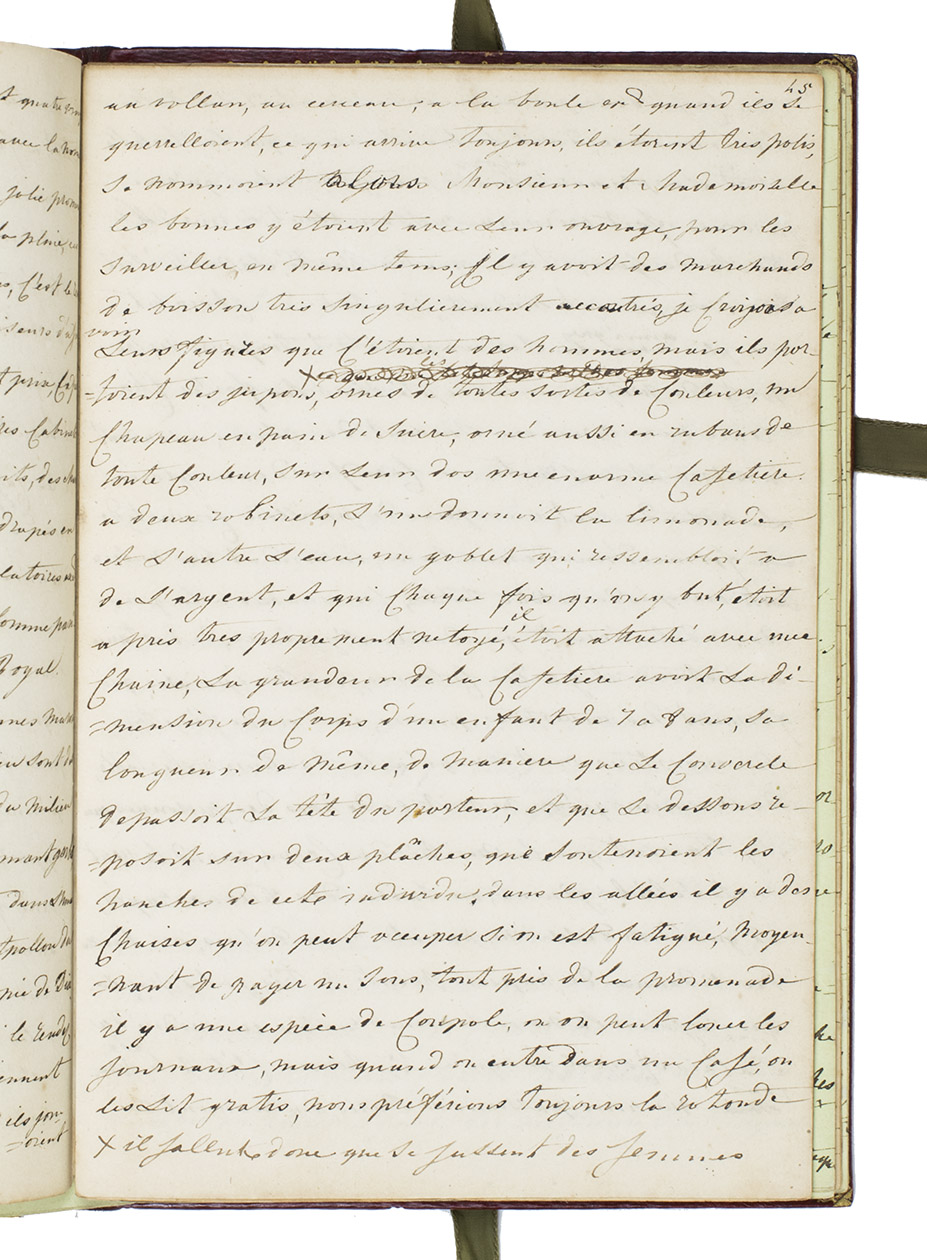 45
au vollan, au cerceau, a la boule et quand ils se
querelloient, ce qui arrive toujours, ils étoient très polis,
se nommoient alors Monsieur et Mademoiselle
les bonnes y étoient avec leur ouvrage, pour les
surveiller, en même tems; Il y avoit des marchands
de boisson très singulierement accoutrés, je croijois a
voir
Leurs figures que c'étoient des hommes, mais ils por-
=toient des jupons, ornés de toutes sortes de Couleurs, un
Chapeau en pain de Sucre, orné aussi en rubans de
toute Couleur, sur Leur dos une enorme Cafetiere
a deux robinets, L'un donnoit la limonade,
et L'autre L'eau, un goblet qui ressembloit a
de L'argent, et qui Chaque fois qu'on y but, étoit
il
apris très proprement netoyé, étoit attaché avec une
Chaine, La grandeur de la Cafetiere avoit La di-
=mension du Corps d'un enfant de 7 a 8 ans, Sa
longueur de même, de maniere que Le Couvercle
depassoit La tête du porteur, et que Le dessous re-
=posoit sur deux plâches, qui soutenoient les
hanches de cete individu, dans les allées il y a des
Chaises qu'on peut occuper si on est fatigué, Moyen-
=nant de payer un Sous, tout près de la promenade
il y a une espèce de Coupole, ou on peut louer les
Journaux, mais quand on entre dans un Café, on
les Lit gratis, nous préférions toujours la rotonde
X il fallut donc que se fussent des femmes